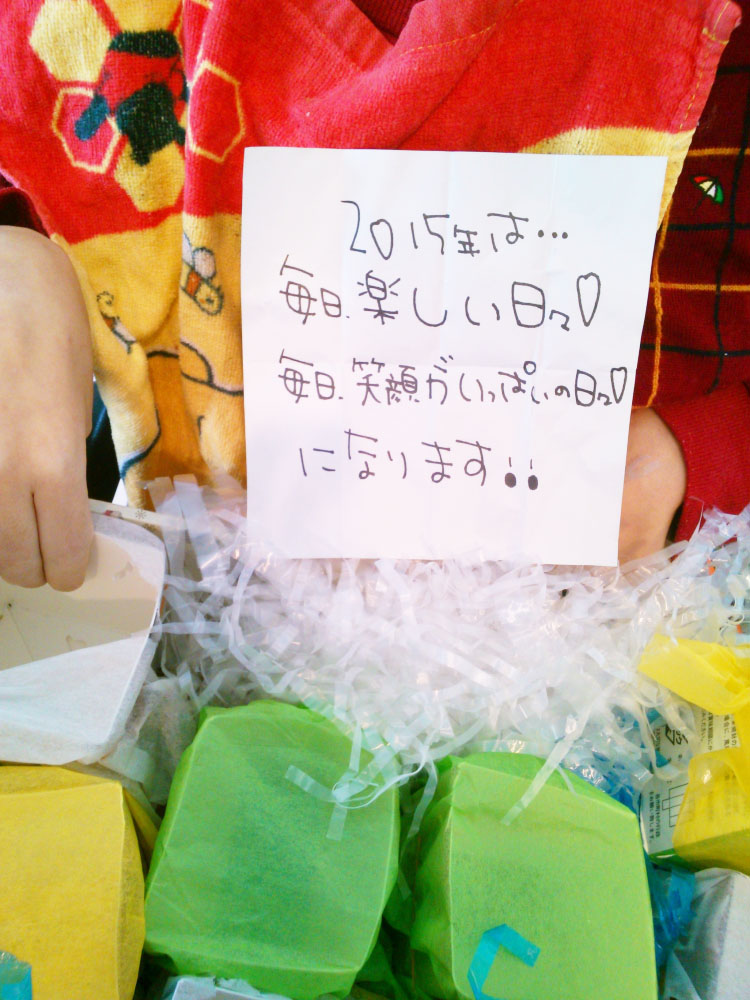 2015年は…
毎日、楽しい日々♡
毎日、笑顔がいっぱいの日々♡
になります!!